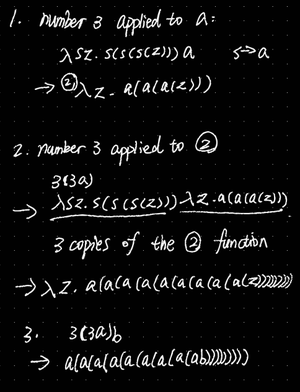 1. number 3 applied to a:
λsz.s(s(s(z)))a s→a
→ ② λz.a(a(a(z)))
2. number 3 applied to ②
3(3a)
→ λsz.s(s(s(z))) λz.a(a(a(z)))
3 copies of the ② function
→ λz. a(a(a(a(a(a(a(a(a(z)))))))))
3. 3(3a)b
→ a(a(a(a(a(a(a(a(ab))))))))